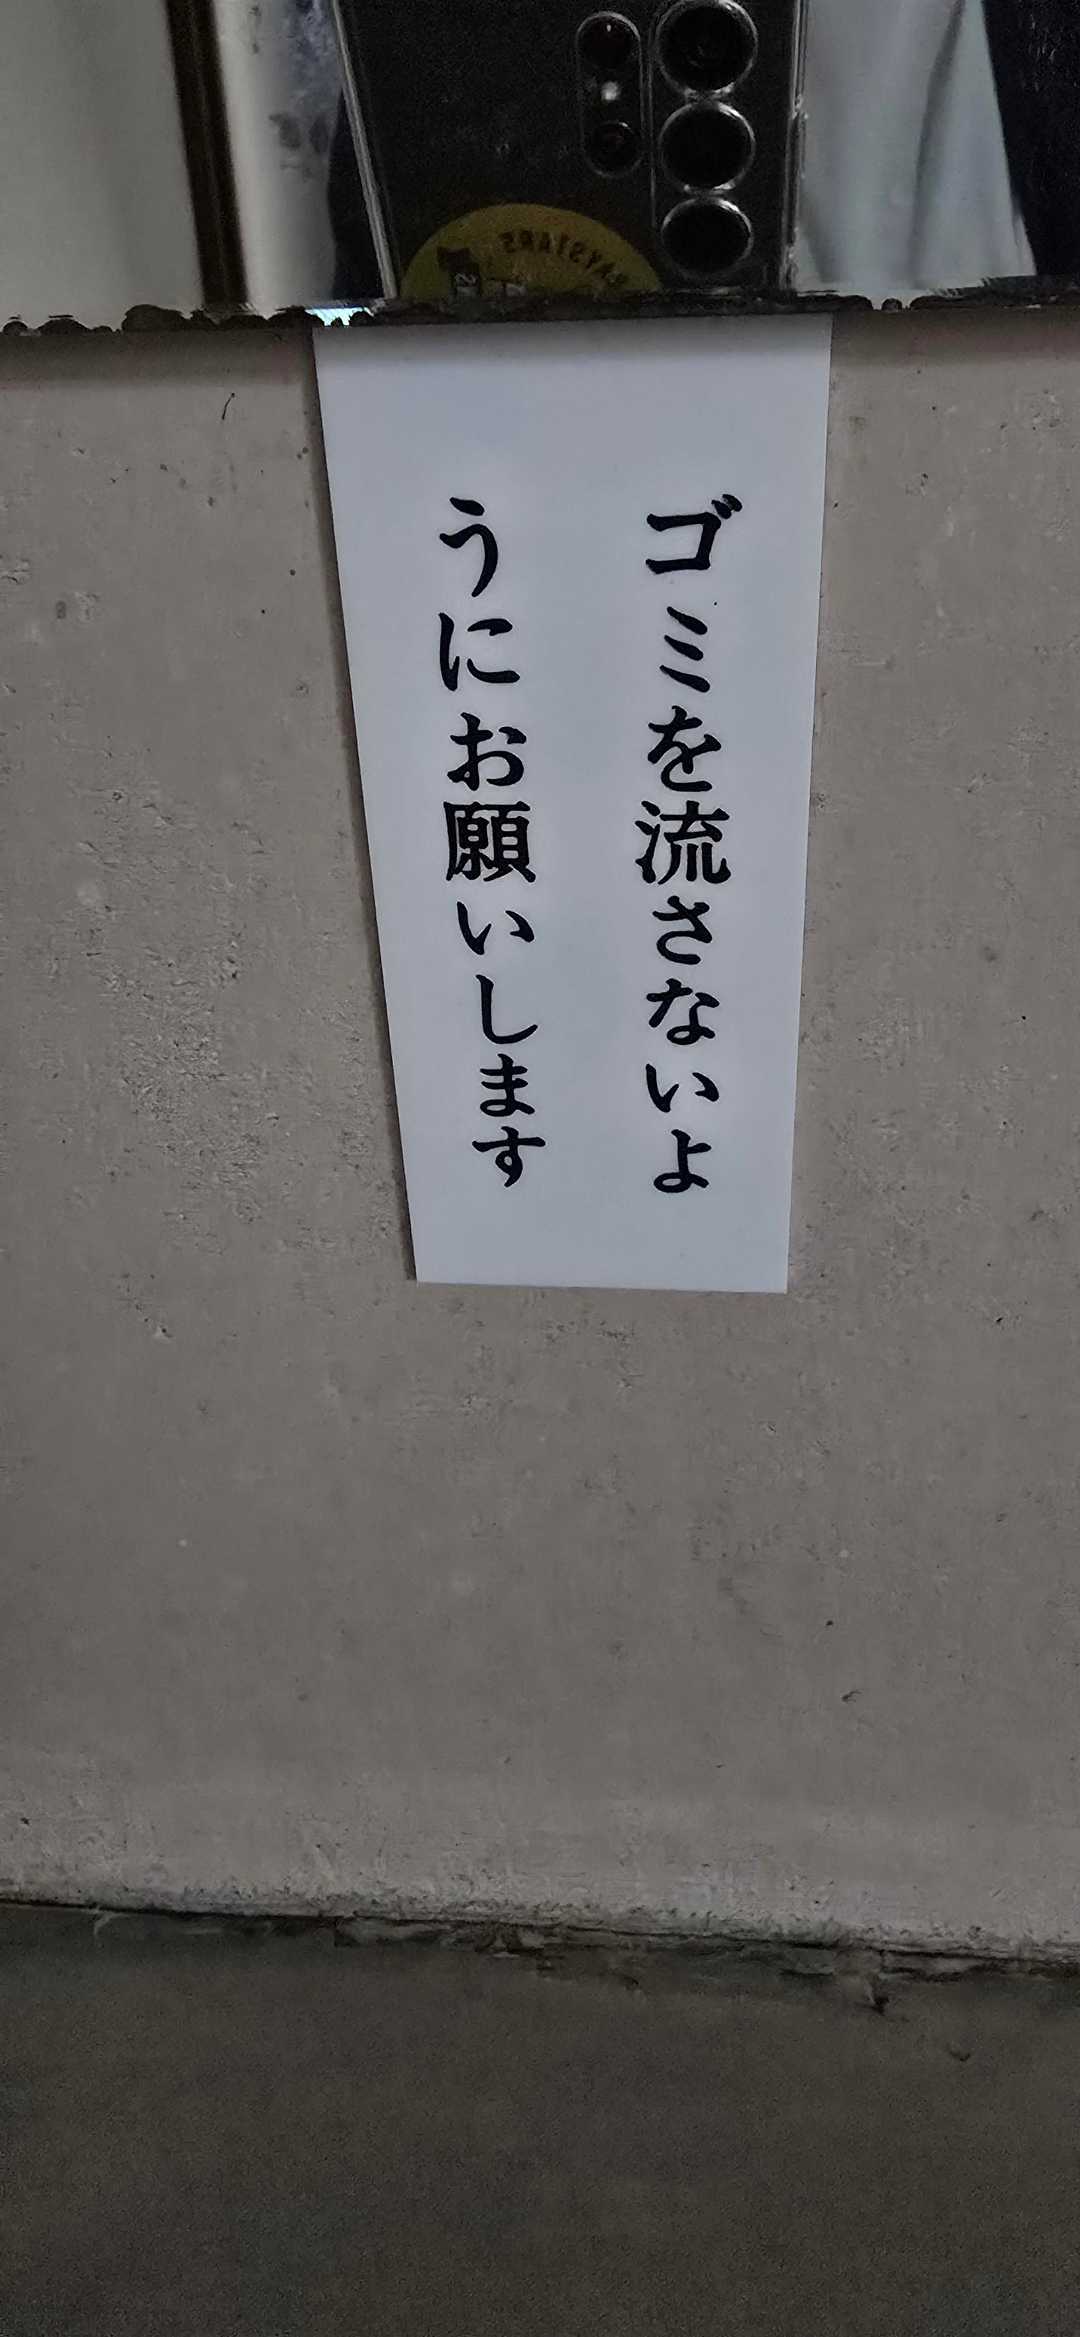 ゴミを流さないよ
うにお願いします
BAYSTARS